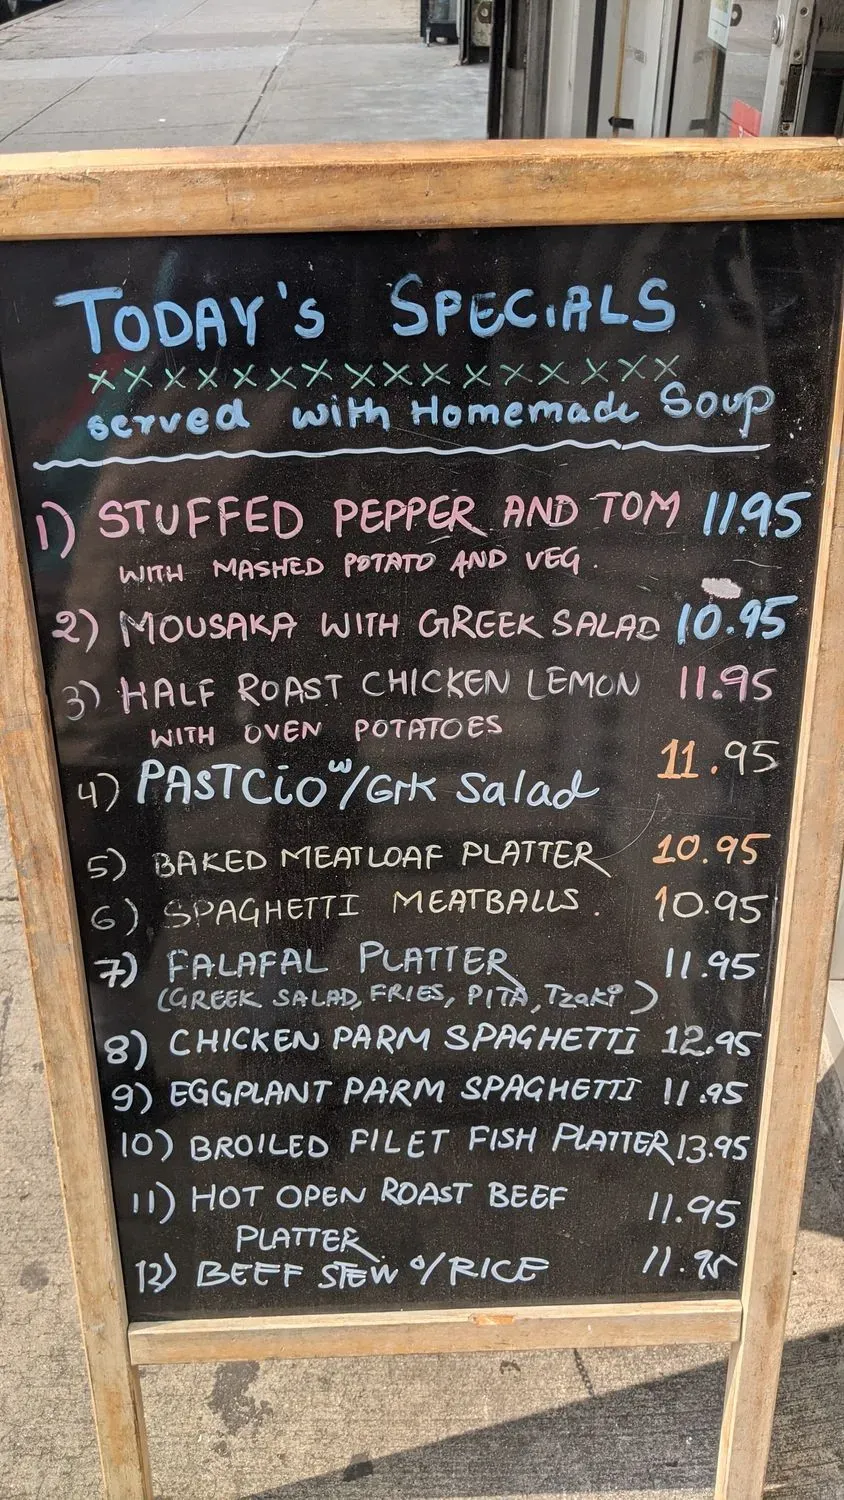 TODAY's SPECIALS
xxxxxxxxxxxxxxxxx
served with Homemade Soup
1) STUFFED PEPPER AND TOM 11.95
WITH MASHED POTATO AND VEG.
2) MOUSAKA WITH GREEK SALAD 10.95
3) HALF ROAST CHICKEN LEMON 11.95
WITH OVEN POTATOES
4) PASTCiO w/Grk Salad 11.95
5) BAKED MEATLOAF PLATTER 10.95
6) SPAGHETTI MEATBALLS. 10.95
7) FALAFAL PLATTER 11.95
(GREEK SALAD, FRIES, PITA, Tzaki)
8) CHICKEN PARM SPAGHETTI 12.95
9) EGGPLANT PARM SPAGHETTI 11.95
10) BROILED FILET FISH PLATTER 13.95
11) HOT OPEN ROAST BEEF 11.95
PLATTER
12) BEEF STEW o/RICE 11.95